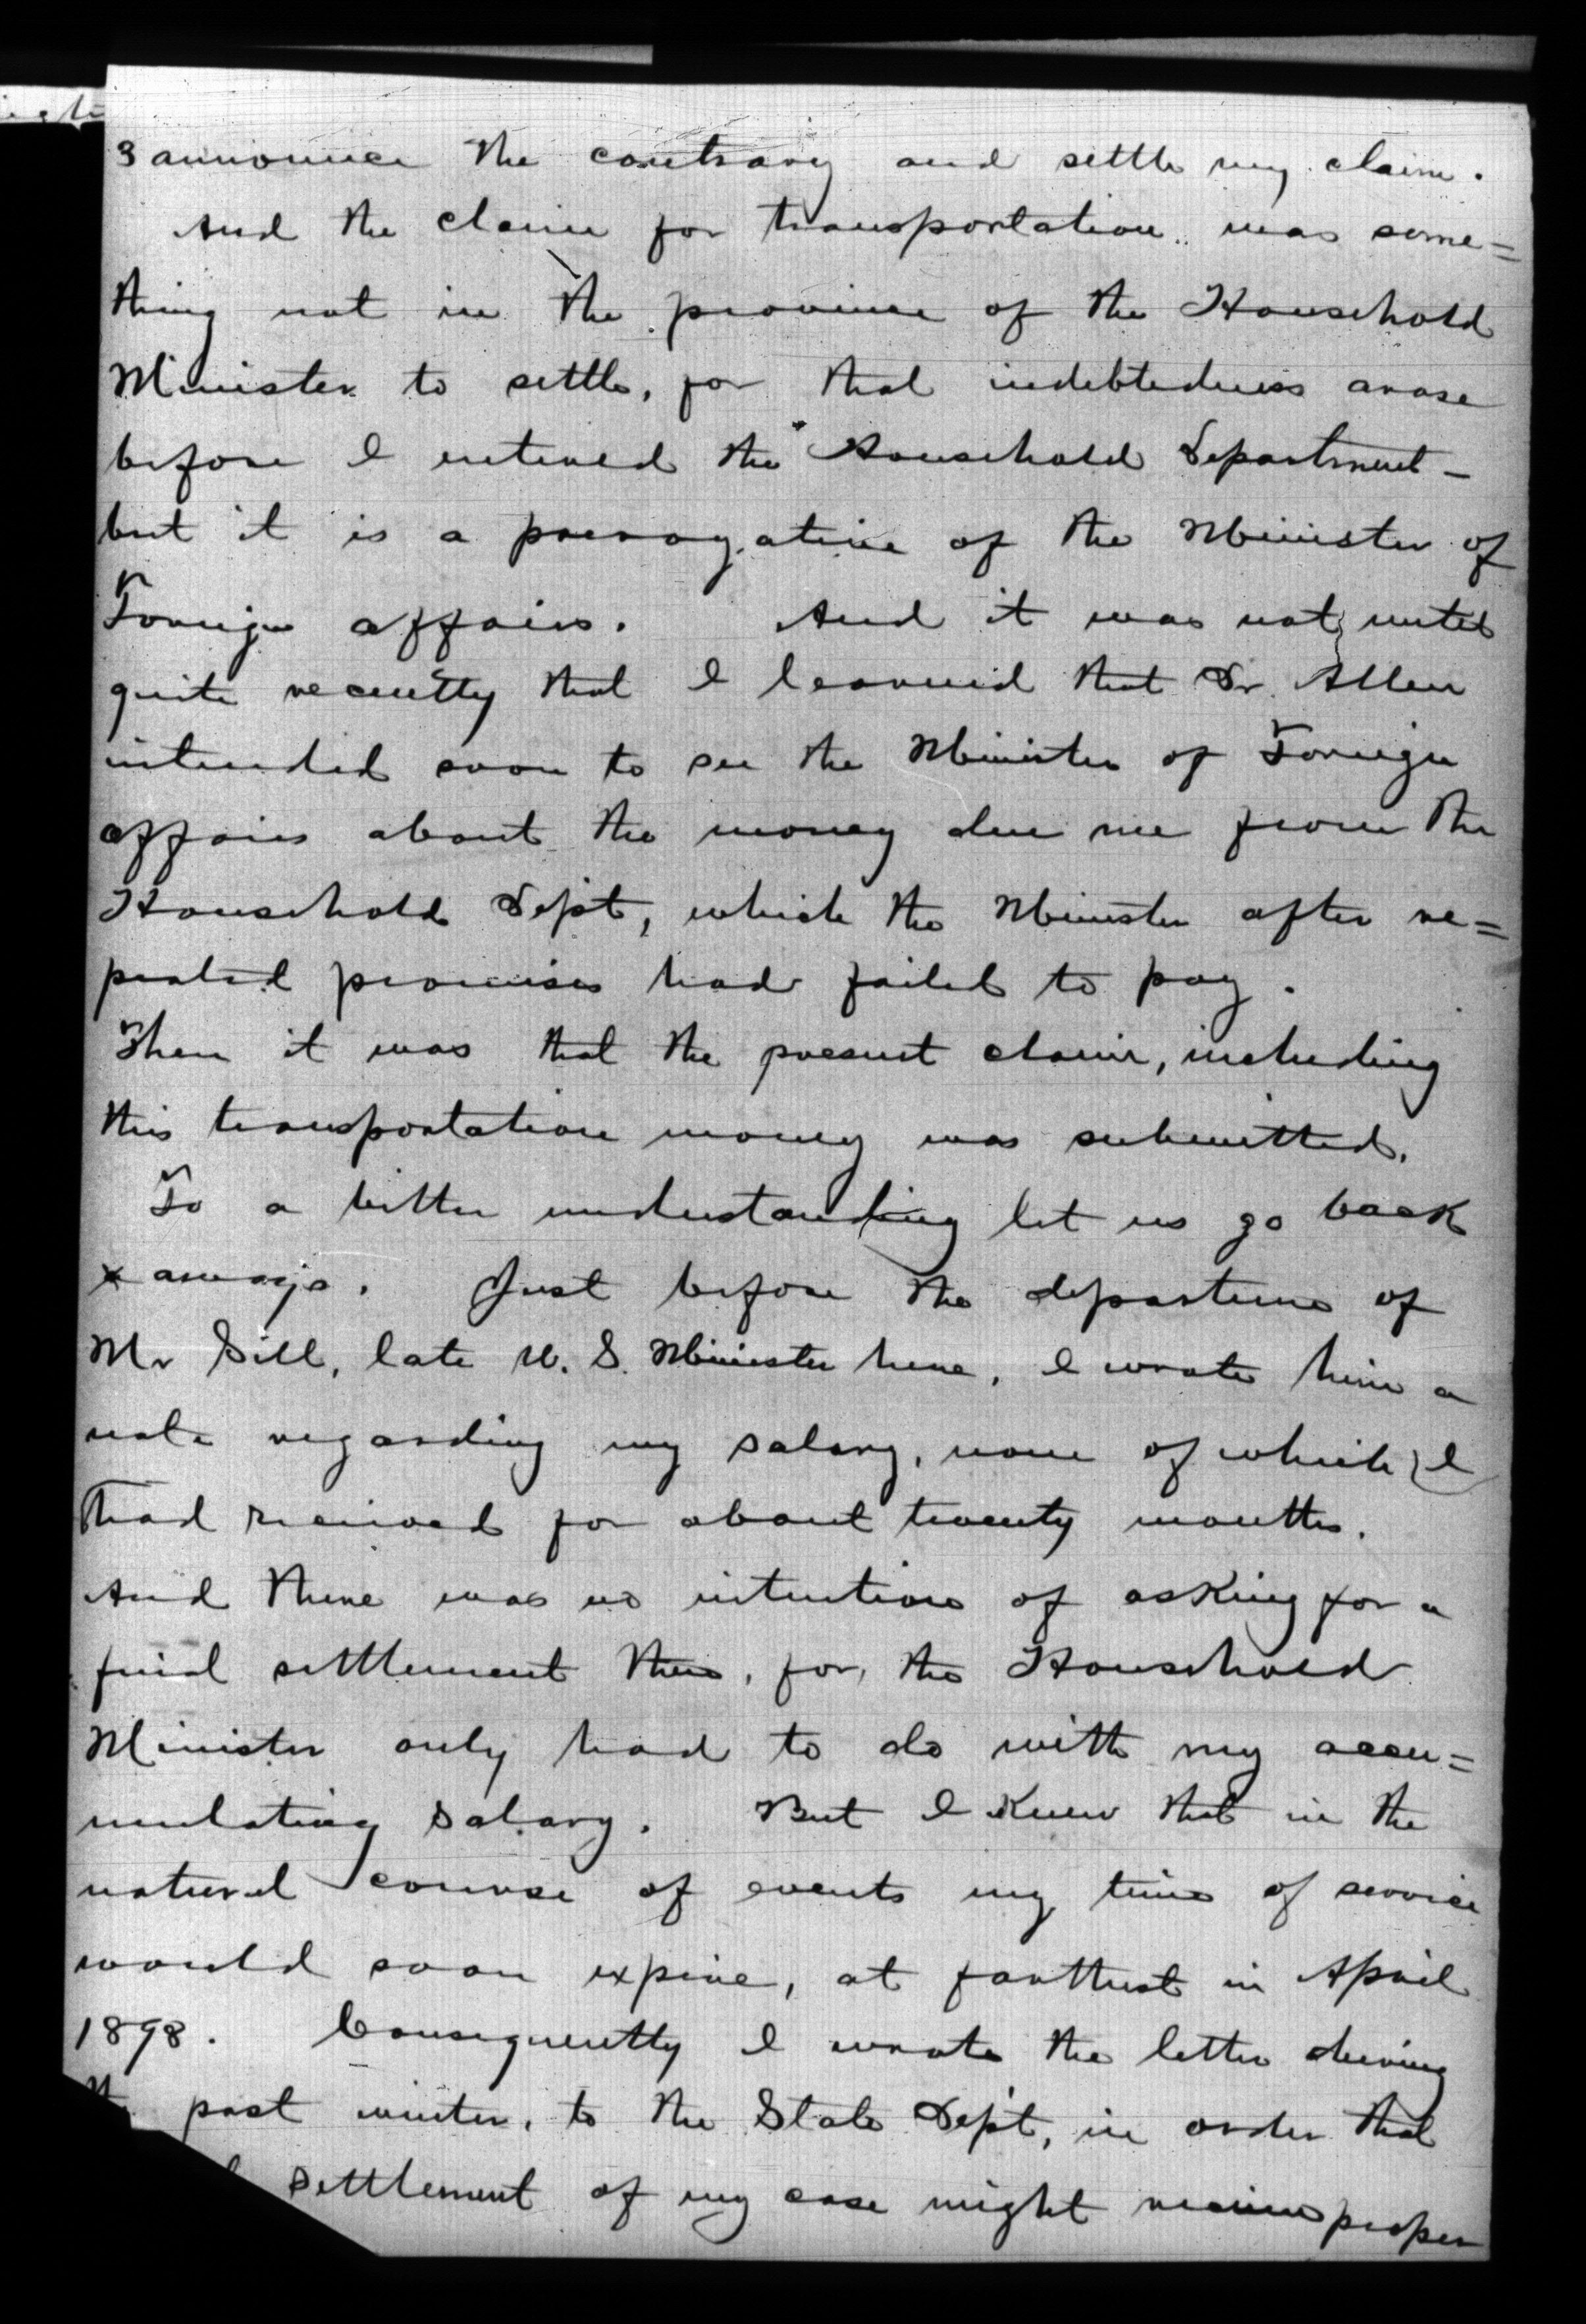 3 announce the contrary and settle my claim.
And the claim for transportation was some=
thing not in the province of the Household
Minister to settle, for that indebtedness arose
before I entered the Household Department –
but it is a prerogative of the Minister of
Foreign affairs. And it was not until
quite recently that I learned that Dr. Allen
intended soon to see the Minister of Foreign
affairs about the money due me from the
Household Dept, which the Minister after re=
peated promises had failed to pay.
Then it was that the present claim, including
this transportation money was submitted.
To a better understanding let us go back
a ways. Just before the departure of
Mr Sill, late U. S. Minister here, I wrote him a
note regarding my salary, none of which I
had received for about twenty months.
And there was no intention of asking for a
final settlement then, for, the Household
Minister only had to do with my accu=
mulating salary. But I knew that in the
natural course of events my time of service
would soon expire, at farthest in April
1898. Consequently I wrote the letter during
past winter, to the State Dept, in order that
settlement of my case might receive proper